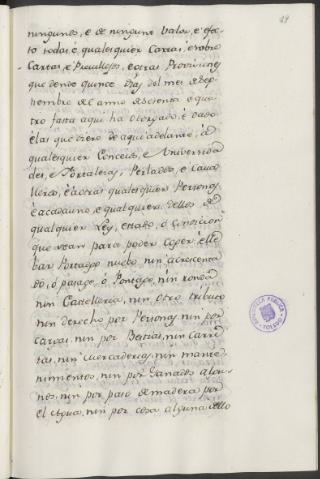 29
ningunos, e de ninguno valor, e efec-
to todas e qualesquier Cartas, e sobre
Cartas, e Previllejos, e otras Provisiones
que dende quince dias del mes de Sep-
tiembre del anno de sesenta e qua-
tro fasta aqui ha otorgado e dado
e las que diere de aqui adelante, á
qualesquier Concejos, e Universida-
des, e Fortalezas, Perlados, e Cava-
lleros, e á otras qualesquier Personas
e á cada uno, e qualquier dellos de
qualquier Ley, estado, ó condicion
que sean para poder coger, e lle-
bar Portazgo nuebo nin acrescenta-
do, ó pasage, ó Pontage, nin ronda
nin Castelleria, nin otro tributo
nin derecho por Personas, nin por
cargas, nin por Bestias, nin Carre-
tas, nin mercaderias, nin mante-
nimientos, nin por Ganados algu-
nos, nin por paso de madera por
el Agua, nin por cosa alguna dello
BIBLIOTECA PUBLICA
TOLEDO